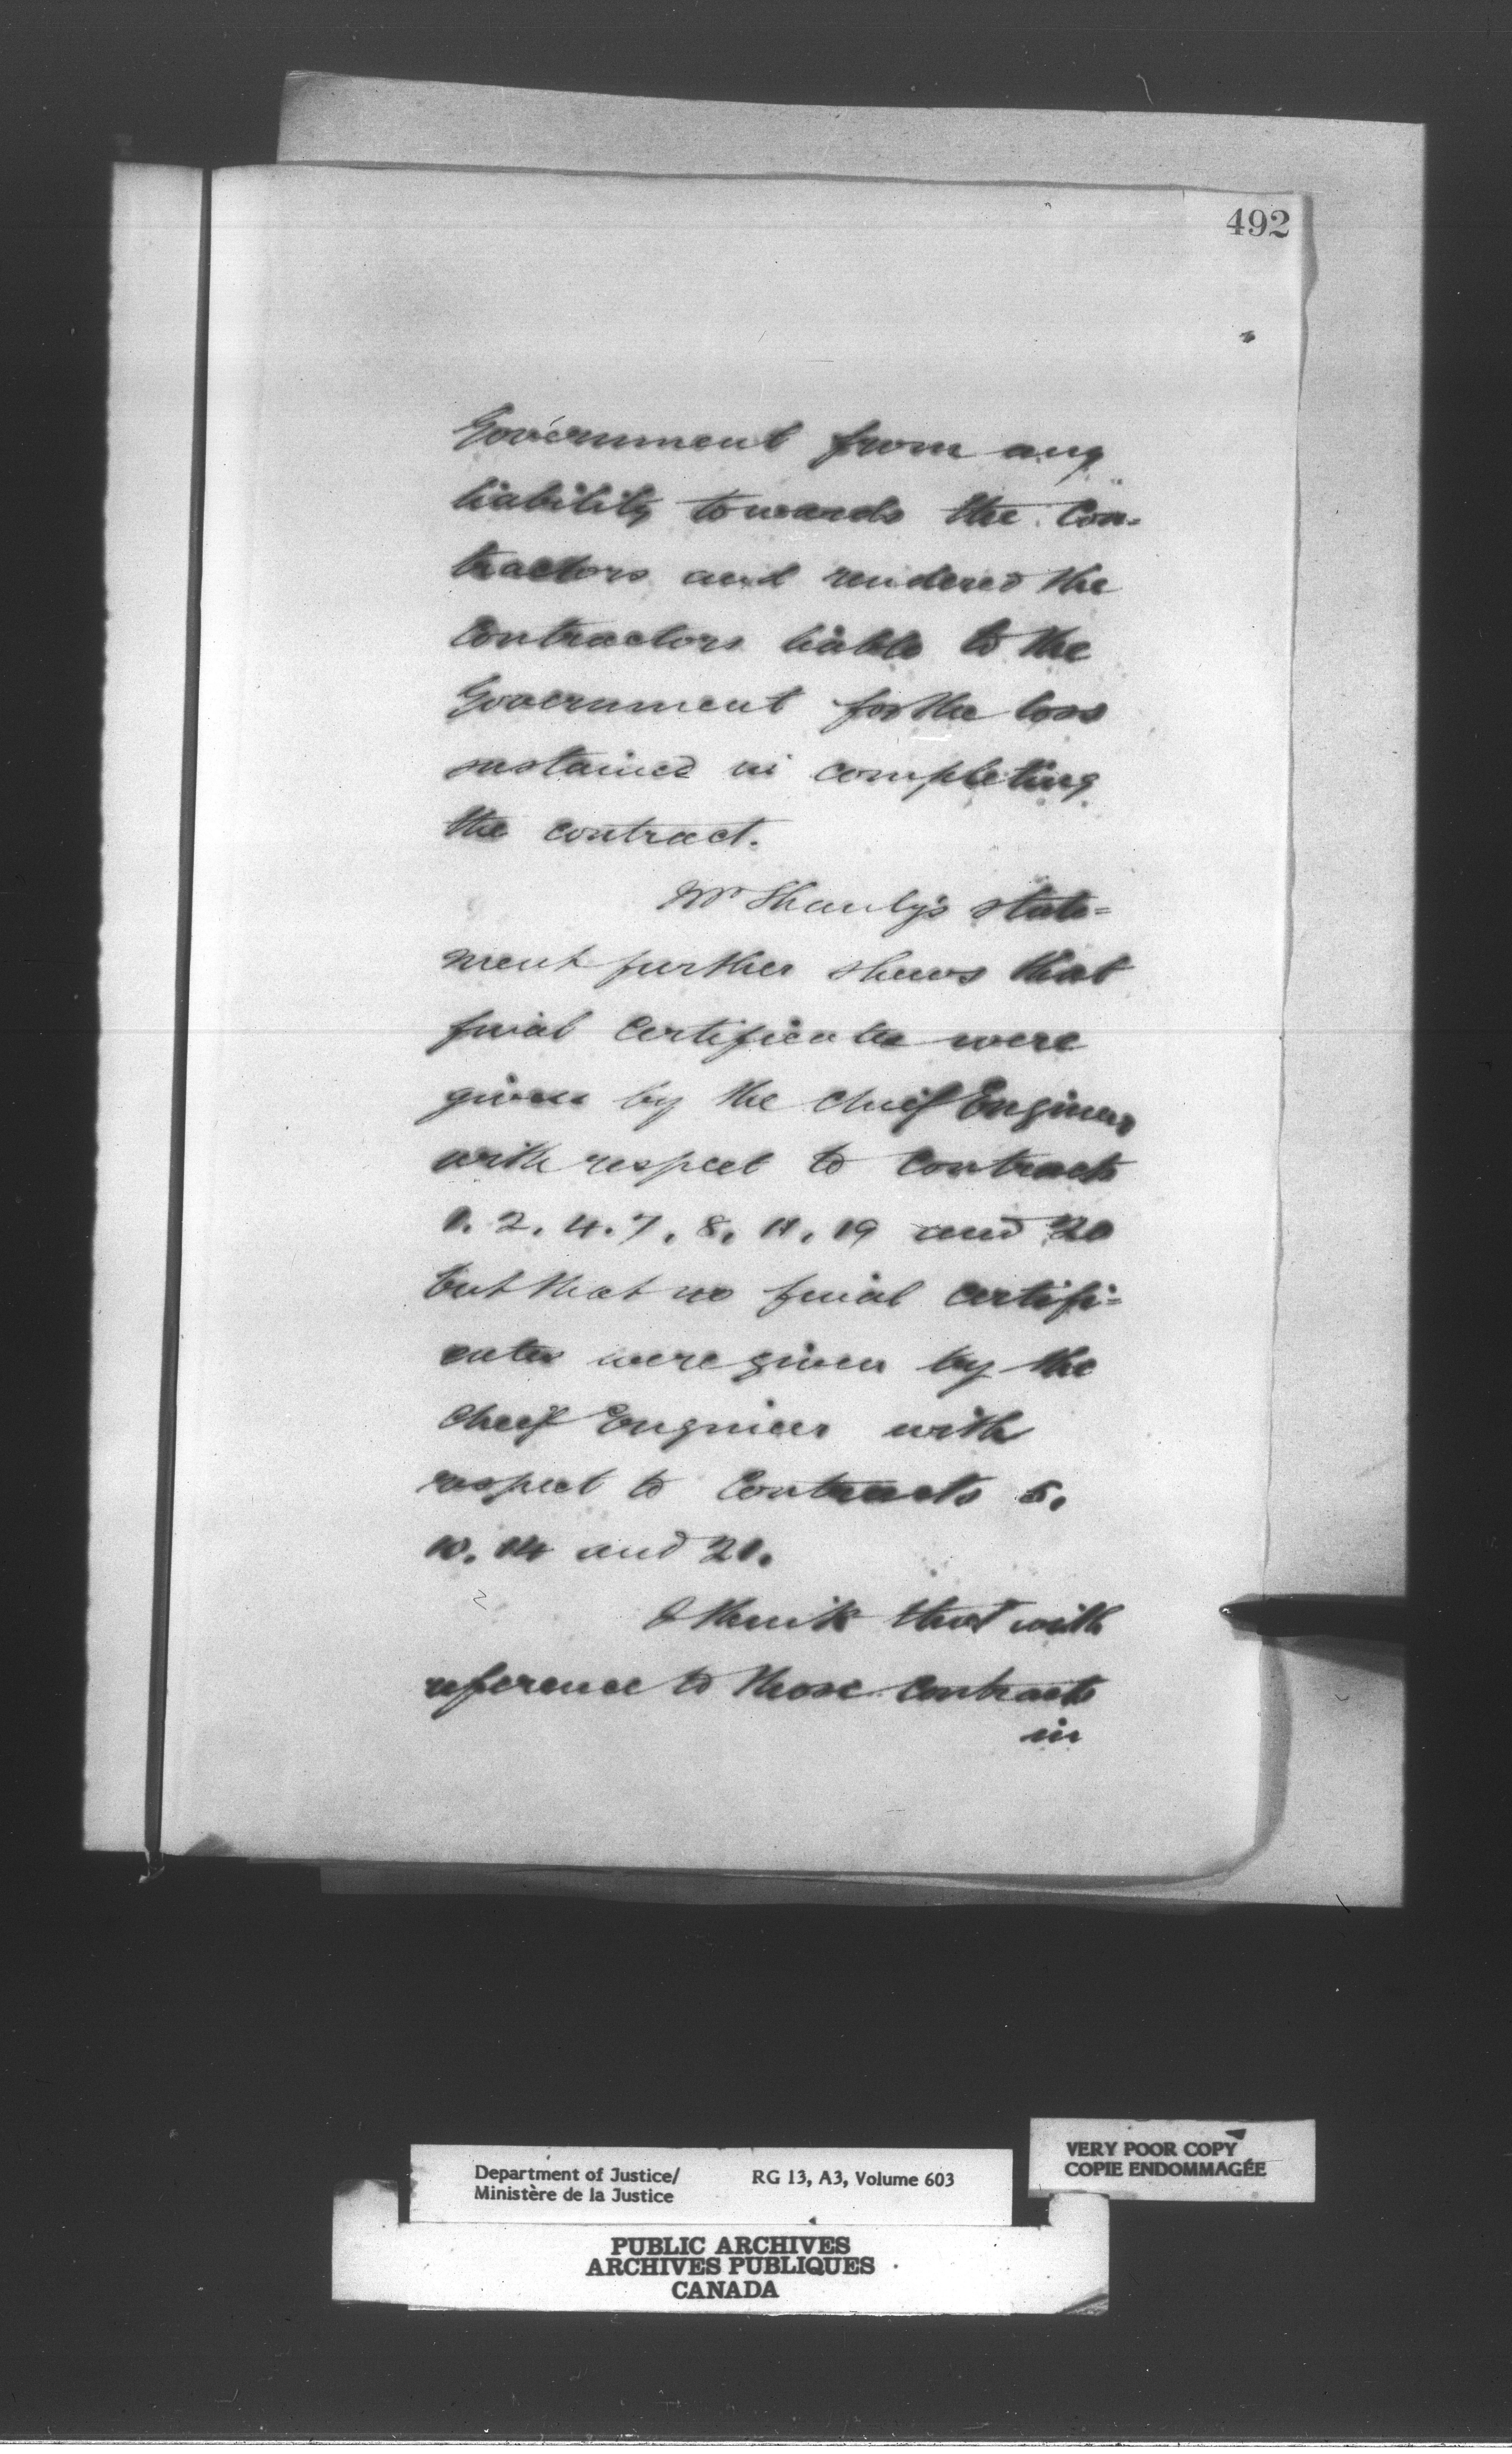 492
Government from any
liability towards the Con-
tractors and rendered the
Contractors liable to the
Government for the loss
sustained in completing
the contract.
Mr Shanly's state=
ment further shews that
final Certificates were
given by the Chief Engineer
with respect to Contracts
1. 2. 4. 7. 8. 11. 19 and 20
but that no final certifi=
cates were given by the
Chief Engineer with
respect to Contracts 5.
10. 14 and 21.
I think that with
reference to those Contracts
in
VERY POOR COPY
COPIE ENDOMMAGÉE
Department of Justice/ RG 13, A3, Volume 603
Ministère de la Justice
PUBLIC ARCHIVES
ARCHIVES PUBLIQUES
CANADA